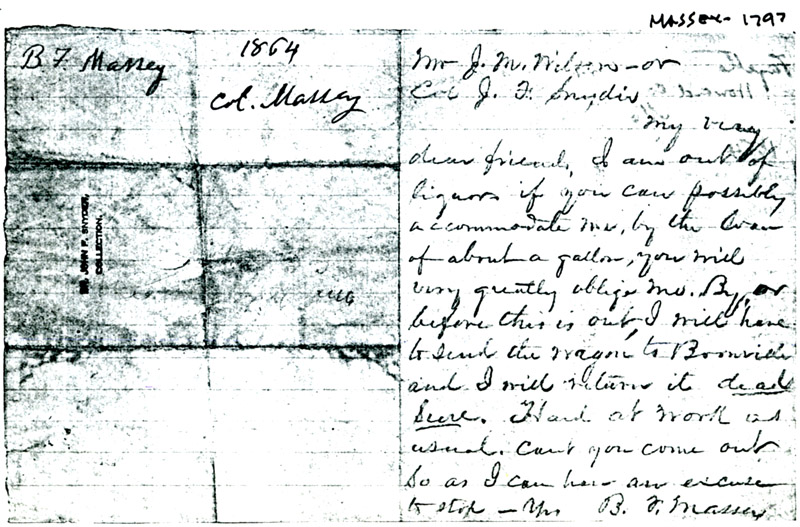 MASSEY - 1797
B F Massey
1864
Col. Massey
DR. JOHN F. SNYDER,
COLLECTION.
Mr J. M. Wilson - or
Col J. F. Snyder
My very
dear friend, I am out of
liquors if you can possibly
accommodate me, by the loan
of about a gallon, you will
very greatly oblige me. By, or
before this is out, I will have
to send the wagon to Boonville
and I will return it dead
sure. Hard at work as
usual. Cant you come out
so as I can have an excuse
to stop - Yrs B. F. Massey